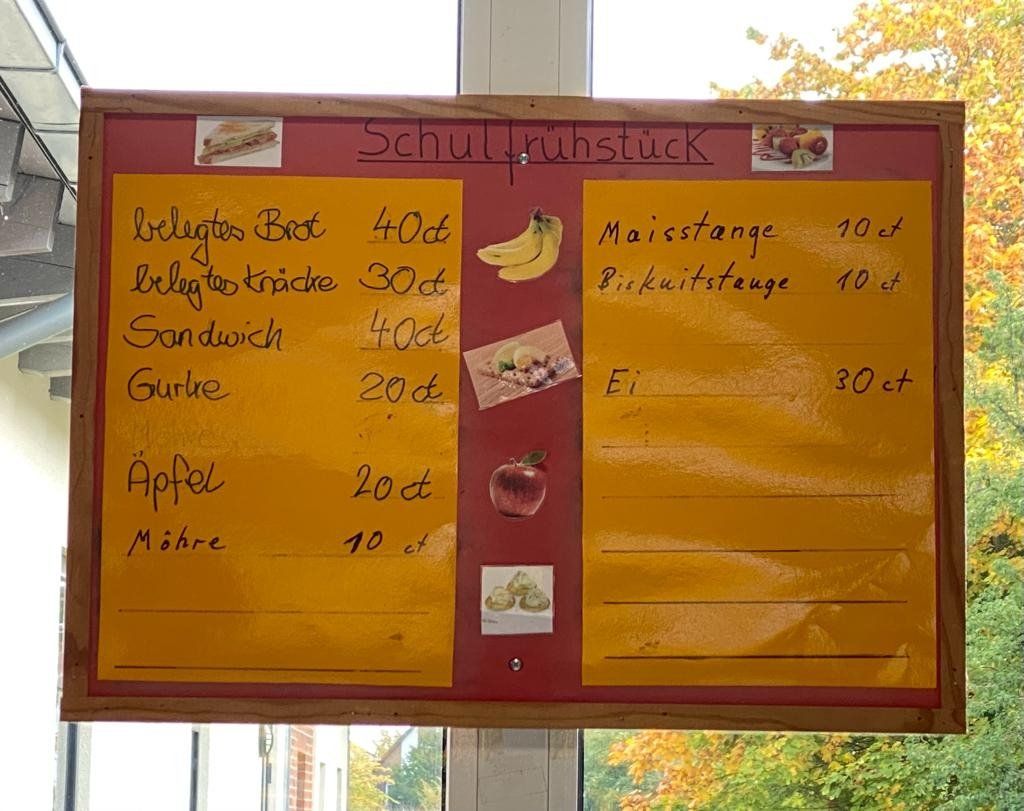 Schulfrühstück
belegtes Brot 40ct
belegtes Knäcke 30ct
Sandwich 40ct
Gurke 20ct
Möhre
Äpfel 20ct
Möhre 10 ct
Maisstange 10 ct
Biskuitstange 10 ct
Ei 30 ct